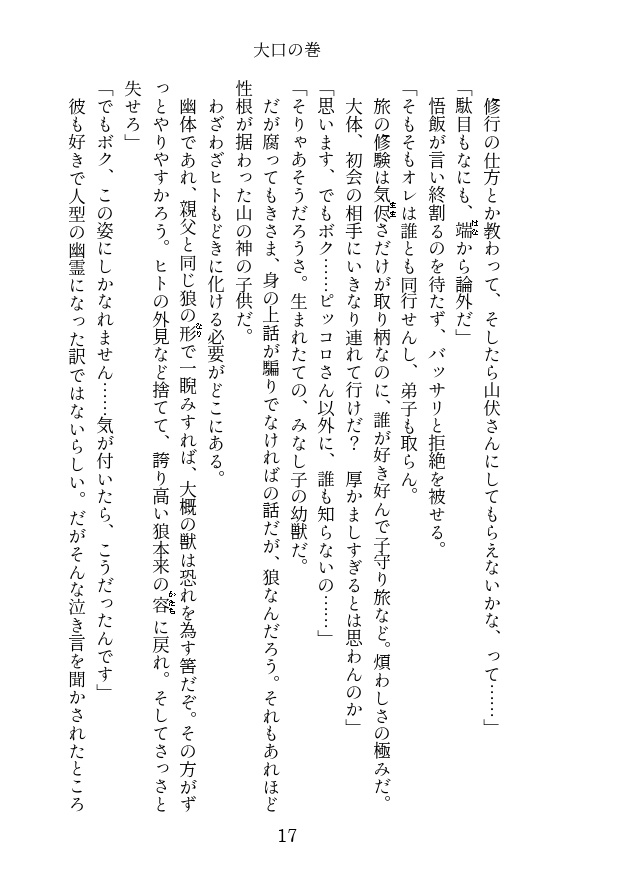 大口の巻
修行の仕方とか教わって、そしたら山伏さんにしてもらえないかな、って……」
「駄目もなにも、端から論外だ」
悟飯が言い終割るのを待たず、バッサリと拒絶を被せる。
「そもそもオレは誰とも同行せんし、弟子も取らん。
旅の修験は気侭さだけが取り柄なのに、誰が好き好んで子守り旅など。煩わしさの極みだ。
大体、初会の相手にいきなり連れて行けだ？　厚かましすぎるとは思わんのか」
「思います、でもボク……ピッコロさん以外に、誰も知らないの……」
「そりゃあそうだろうさ。生まれたての、みなし子の幼獣だ。
だが腐ってもきさま、身の上話が騙りでなければの話だが、狼なんだろう。それもあれほど
性根が据わった山の神の子供だ。
わざわざヒトもどきに化ける必要がどこにある。
幽体であれ、親父と同じ狼の形で一睨みすれば、大概の獣は恐れを為す筈だぞ。その方がず
っとやりやすかろう。ヒトの外見など捨てて、誇り高い狼本来の容に戻れ。そしてさっさと
失せろ」
「でもボク、この姿にしかなれません……気が付いたら、こうだったんです」
彼も好きで人型の幽霊になった訳ではないらしい。だがそんな泣き言を聞かされたところ
17